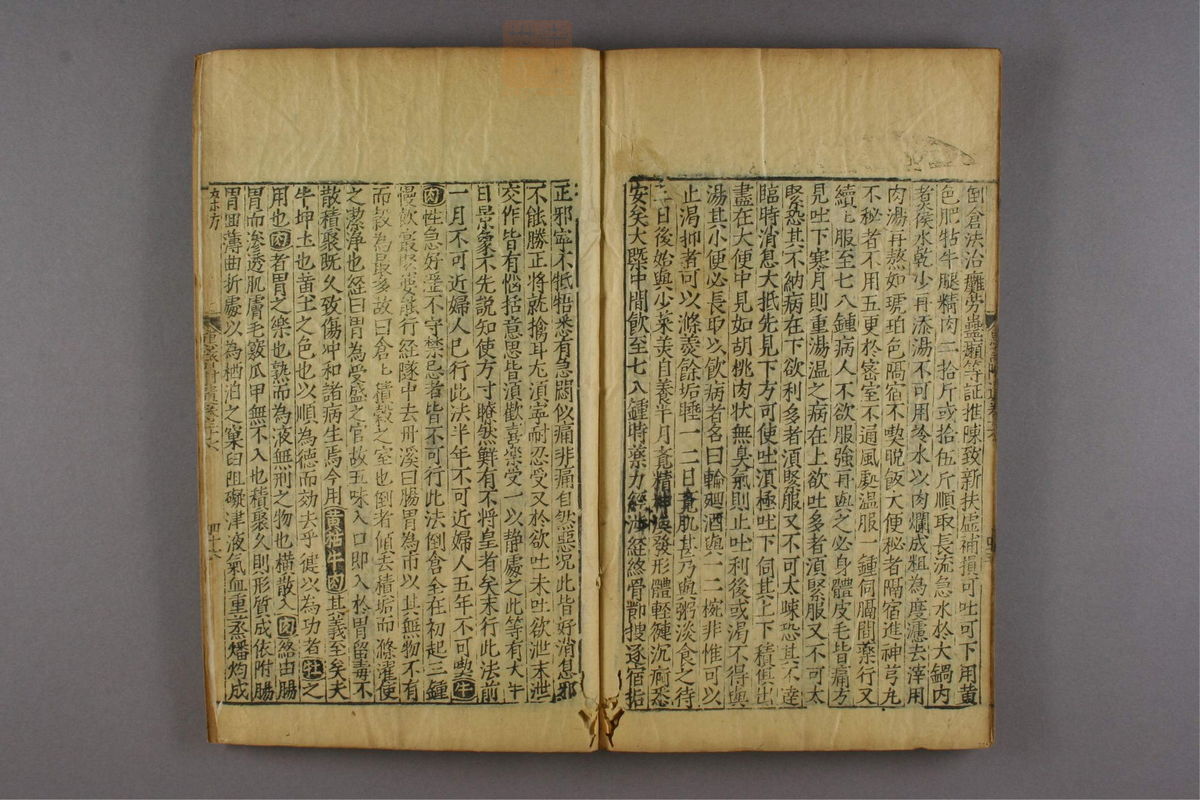 倒倉法治癱勞蠱癩等証推陳致新扶虛補損可吐可下用黃
色肥牯牛腿精肉二拾斤或拾伍斤順取長流急水於大鍋內
者候水乾少再添湯不可用冷水以肉爛成粗為度濾去滓用
肉湯再熬如琥珀色隔宿不喫晚飯大便秘者隔宿進神芎丸
不秘者不用五更於密室不通風處温服一鍾伺膈間藥行又
續續服至七八鍾病人不欲服強再與之必身體皮毛皆痛方
見吐下寒月則重湯温之病在上欲吐多者須緊服又不可太
緊恐其不納病在下欲利多者須緊服又不可太踈恐其不達
臨時消息大抵先見下方可使吐須極吐下伺其上下積俱出
盡在大便中見如胡桃肉狀無臭氣則止吐利後或渴不得與
湯其小便必長取以飲病者名曰輪廻酒與一二椀非惟可以
止渴抑者可以滌羙餘垢睡一二日覺肌甚乃與粥淡食之待
三日後始與少菜羙自養半月覺精神渙發形體輕健沉痾悉
安矣大槩中間飲至七八鍾時藥力經涉經絡骨節搜逐宿垢
正邪寧不牴牾悉有急悶似痛非痛自然惡况此皆好消息邪
不能勝正將就擒耳尤須寧耐忍受又於欲吐未吐欲泄未泄
交作皆有惱括意思皆須歡喜樂受一以静處之此等有大半
日景象不先説知使方寸瞭然鮮有不將皇者矣未行此法前
一月不可近婦人已行此法半年不可近婦人五年不可喫牛
肉性急好淫不守禁忌者皆不可行此法倒倉全在初起三鍾
慢飲最緊要能行經隧中去丹溪曰腸胃為市以其無物不有
而穀為最多故曰倉倉積穀之室也倒者傾去積垢而滌濯使
之潔淨也經曰胃為受盛之官故五味入口即入於胃留毒不
散積聚既久致傷冲和諸病生焉今用黃牯牛肉其義至矣夫
牛坤土也黃土之色也以順為德而効去乎徤以為功者牡之
用也肉者胃之樂也熟而為液無形之物也橫散入肉絡由腸
胃而滲透肌膚毛竅爪甲無不入也積聚久則形質成依附腸
胃回薄曲折處以為栖泊之窠臼阻礙津液氣血重蒸燔灼成
四十六